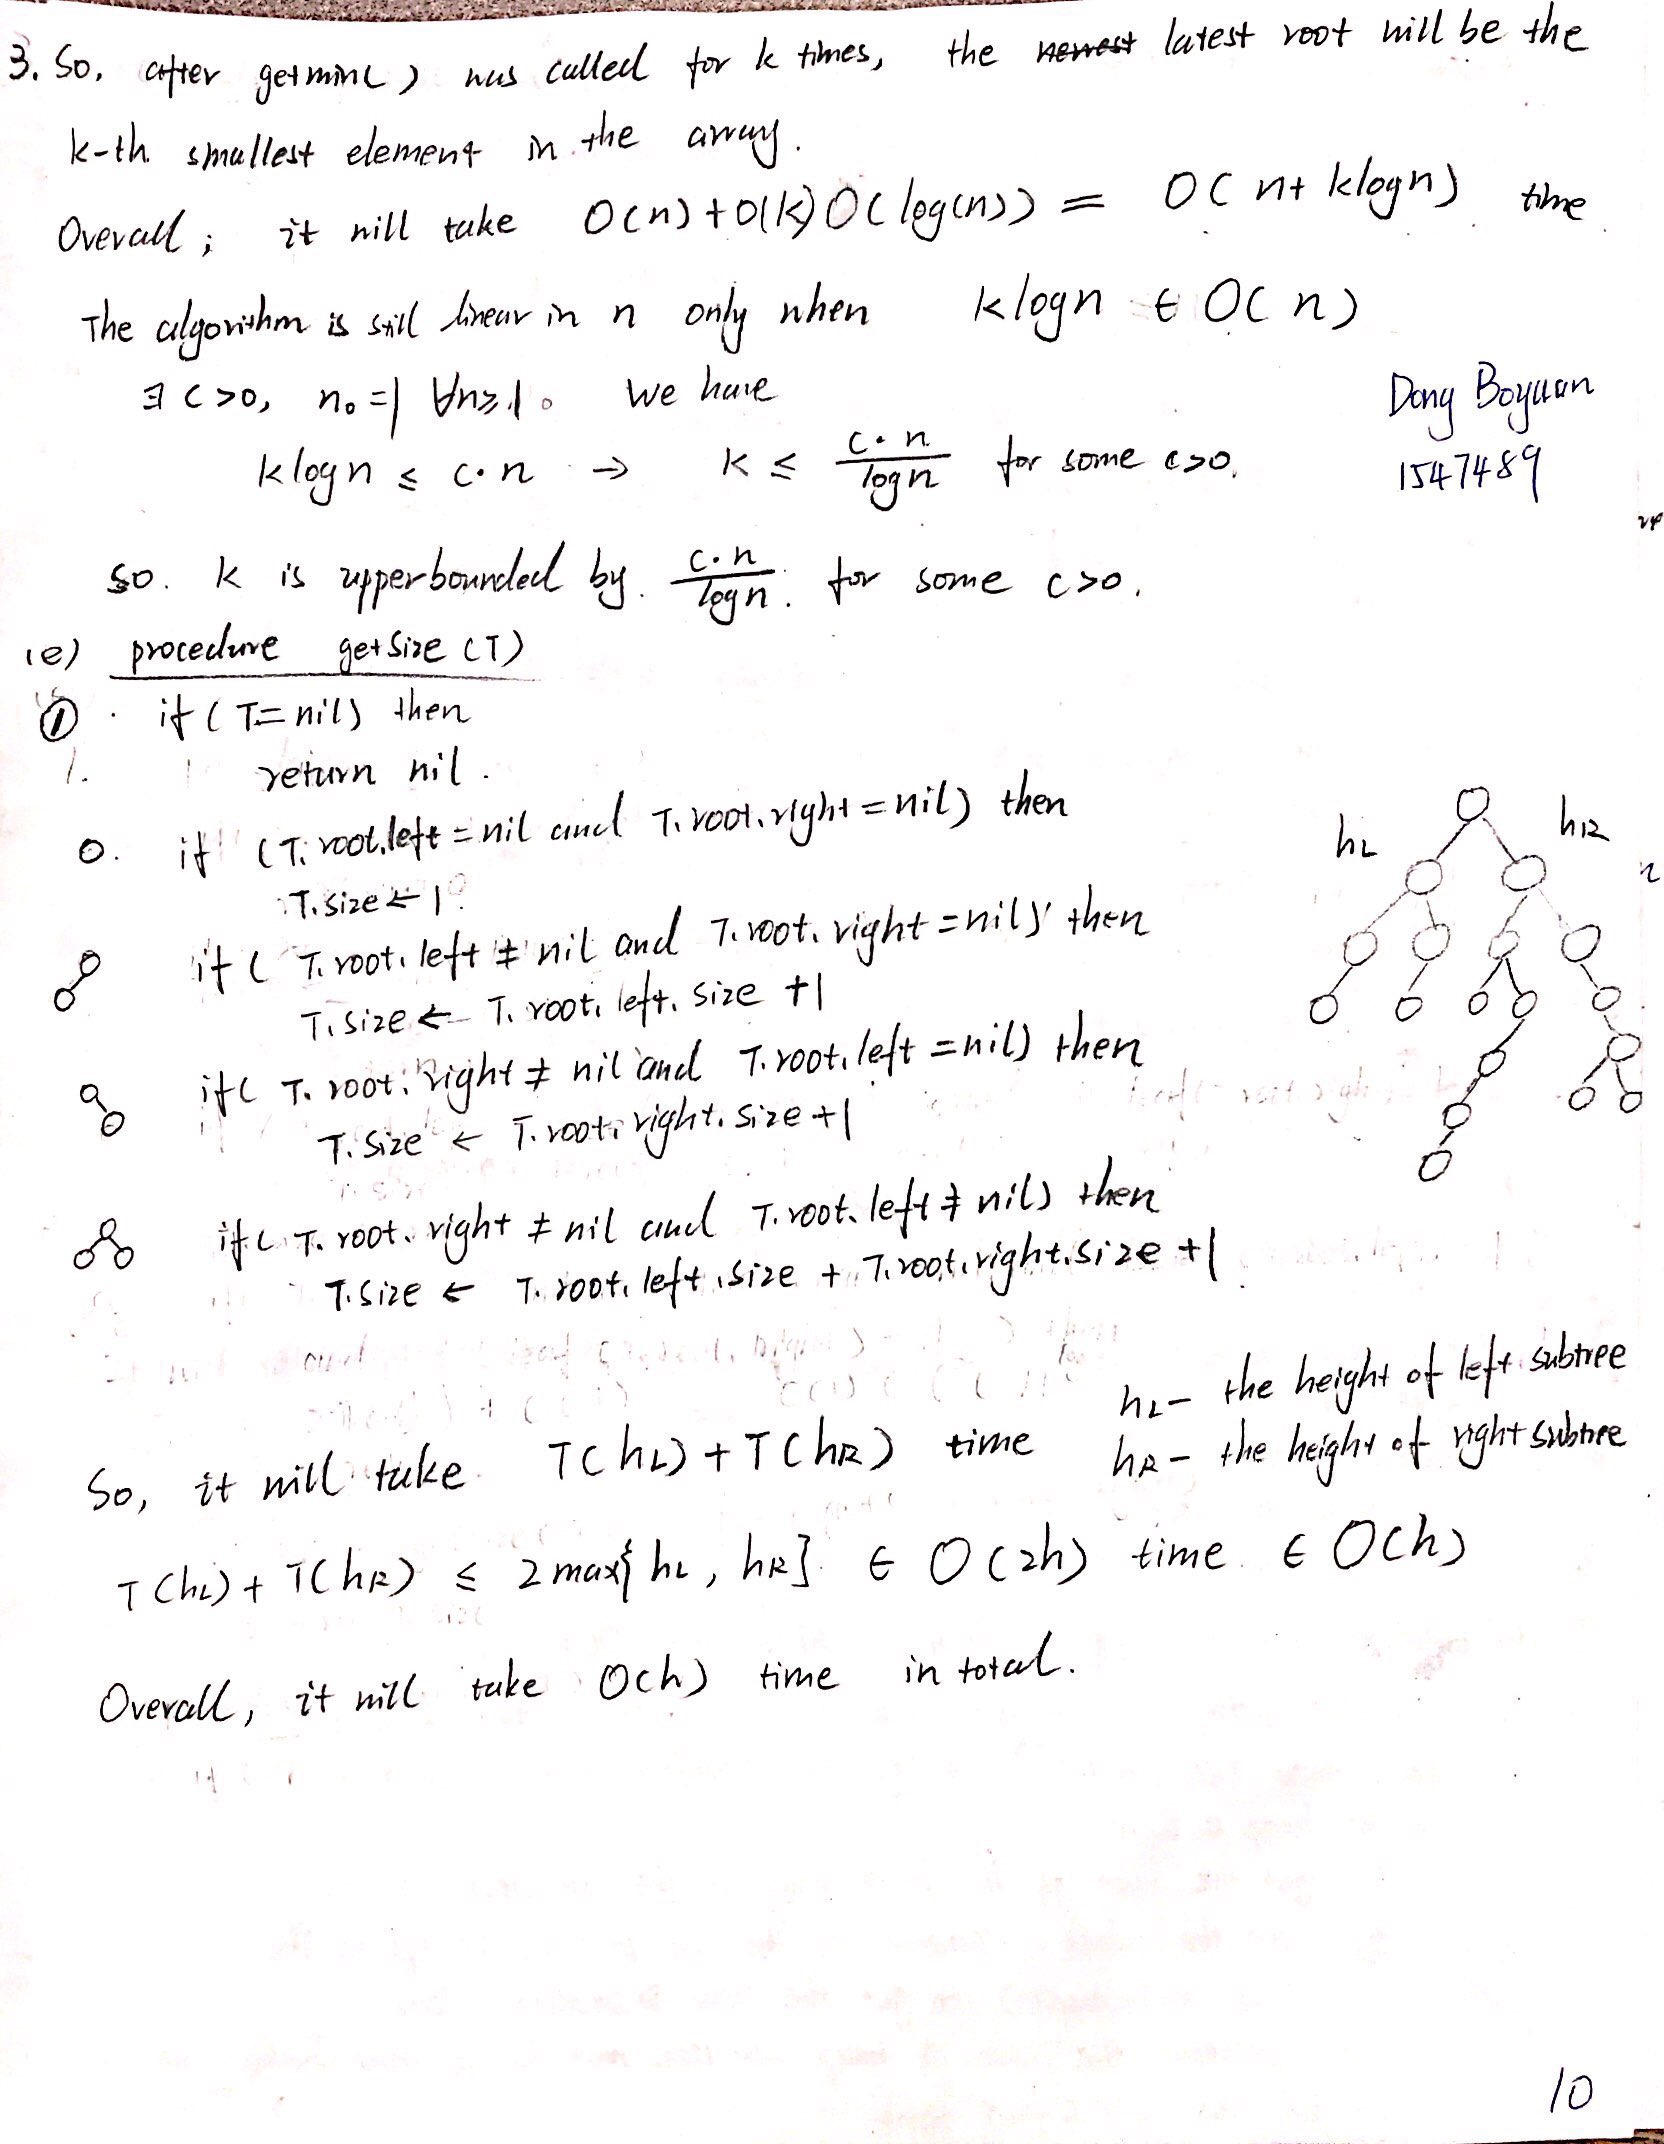 3. So, after getmin() was called for k times, the newest latest root will be the
k-th smallest element in the array.
Overall, it will take O(n)+O(k)O(log(n)) = O(n+klogn) time
The algorithm is still linear in n only when klogn ∈ O(n)
∃ c>0, n₀=1 ∀n≥1. We have
klogn ≤ c·n → k ≤ c·n/logn for some c>0.
Dong Boyuan
1547489
So. k is upperbounded by c·n/logn. for some c>0.
(e) procedure getSize(T)
① if (T=nil) then
1. return nil.
0. if (T.root.left=nil and T.root.right=nil) then
T.size ← 1
if (T.root.left ≠ nil and T.root.right=nil) then
T.size ← T.root.left.size +1
if (T.root.right ≠ nil and T.root.left=nil) then
T.size ← T.root.right.size +1
if (T.root.right ≠ nil and T.root.left ≠ nil) then
T.size ← T.root.left.size + T.root.right.size +1
hL hR
hL – the height of left subtree
So, it will take T(hL)+T(hR) time hR – the height of right subtree
T(hL)+T(hR) ≤ 2max{hL, hR} ∈ O(2h) time ∈ O(h)
Overall, it will take O(h) time in total.
10